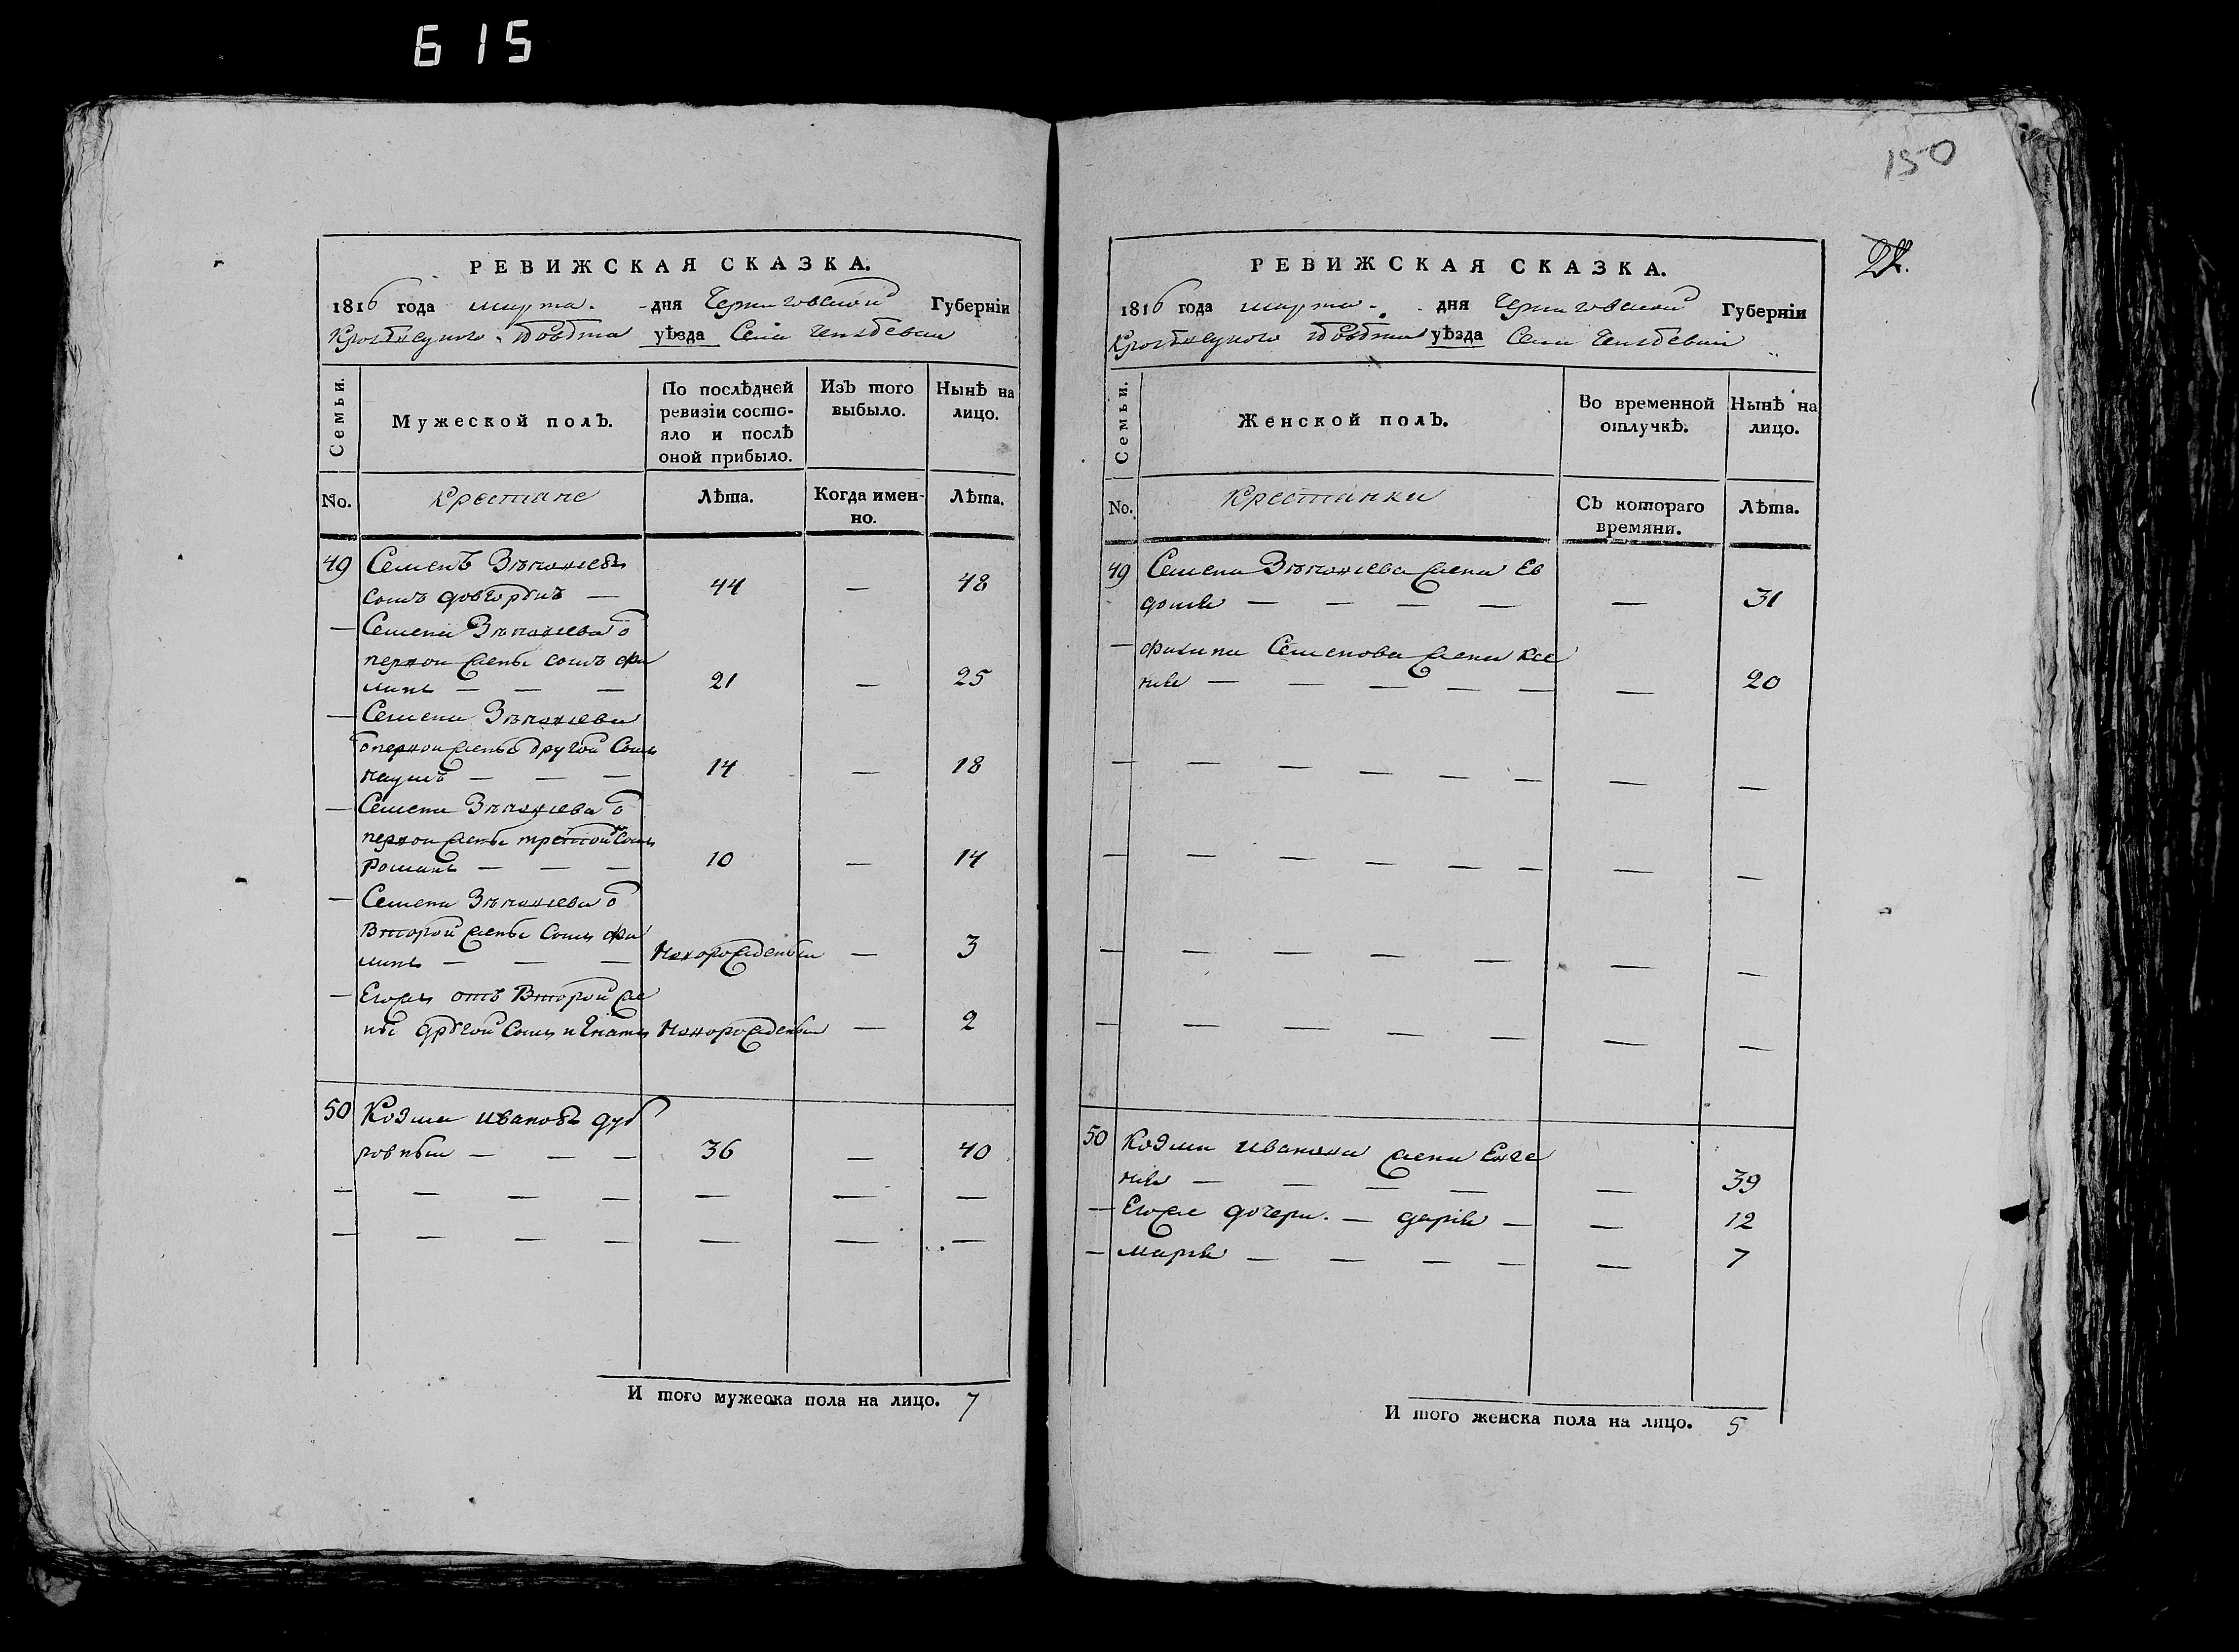 615
150
22.
РЕВИЖСКАЯ СКАЗКА.
1816 года марта - дня Черниговской Губерніи
уѣзда Села
Семьи.
Мужеской полЪ.
По послѣдней
ревизіи состо-
яло и послѣ
оной прибыло.
ИзЪ того
выбыло.
Нынѣ на
лицо.
No.
Крестяне
Лѣта.
Когда имен-
но.
Лѣта.
49 СеменЪ
сынъ — 44 — 48
— Семена
первои жены сынъ Фи
липъ — — — 21 — 25
— Семена
первои жены другой Сынъ
наумъ — — — 14 — 18
— Семена
первои жены третой Сынъ
Романъ — — — 10 — 14
— Семена
Второй жены Сынъ Фи
липъ — — — Новорожденый — 3
— Егожъ отъ Второй же
ны другой Сынъ Новорожденый — 2
50 Козма Ивановъ дуб
ровныи — — — 36 — 40
— — — — — — —
— — — — — — —
И того мужеска пола на лицо. 7
РЕВИЖСКАЯ СКАЗКА.
1816 года марта - дня Черниговской Губерніи
уѣзда Села
Семьи.
Женской полЪ.
Во временной
отлучкѣ.
Нынѣ на
лицо.
No.
Крестянки
СЪ котораго
времяни.
Лѣта.
49 Семена жена Ев
— — — — — 31
— Филипа Семенова жена Ксе
ния — — — — — — 20
— — — — — — — —
— — — — — — — —
— — — — — — — —
— — — — — — —
50 Козмы Иванова жена Евге
ния — — — — — 39
— Егоже дочери. — дария — — 12
— Мария — — — — — 7
И того женска пола на лицо. 5